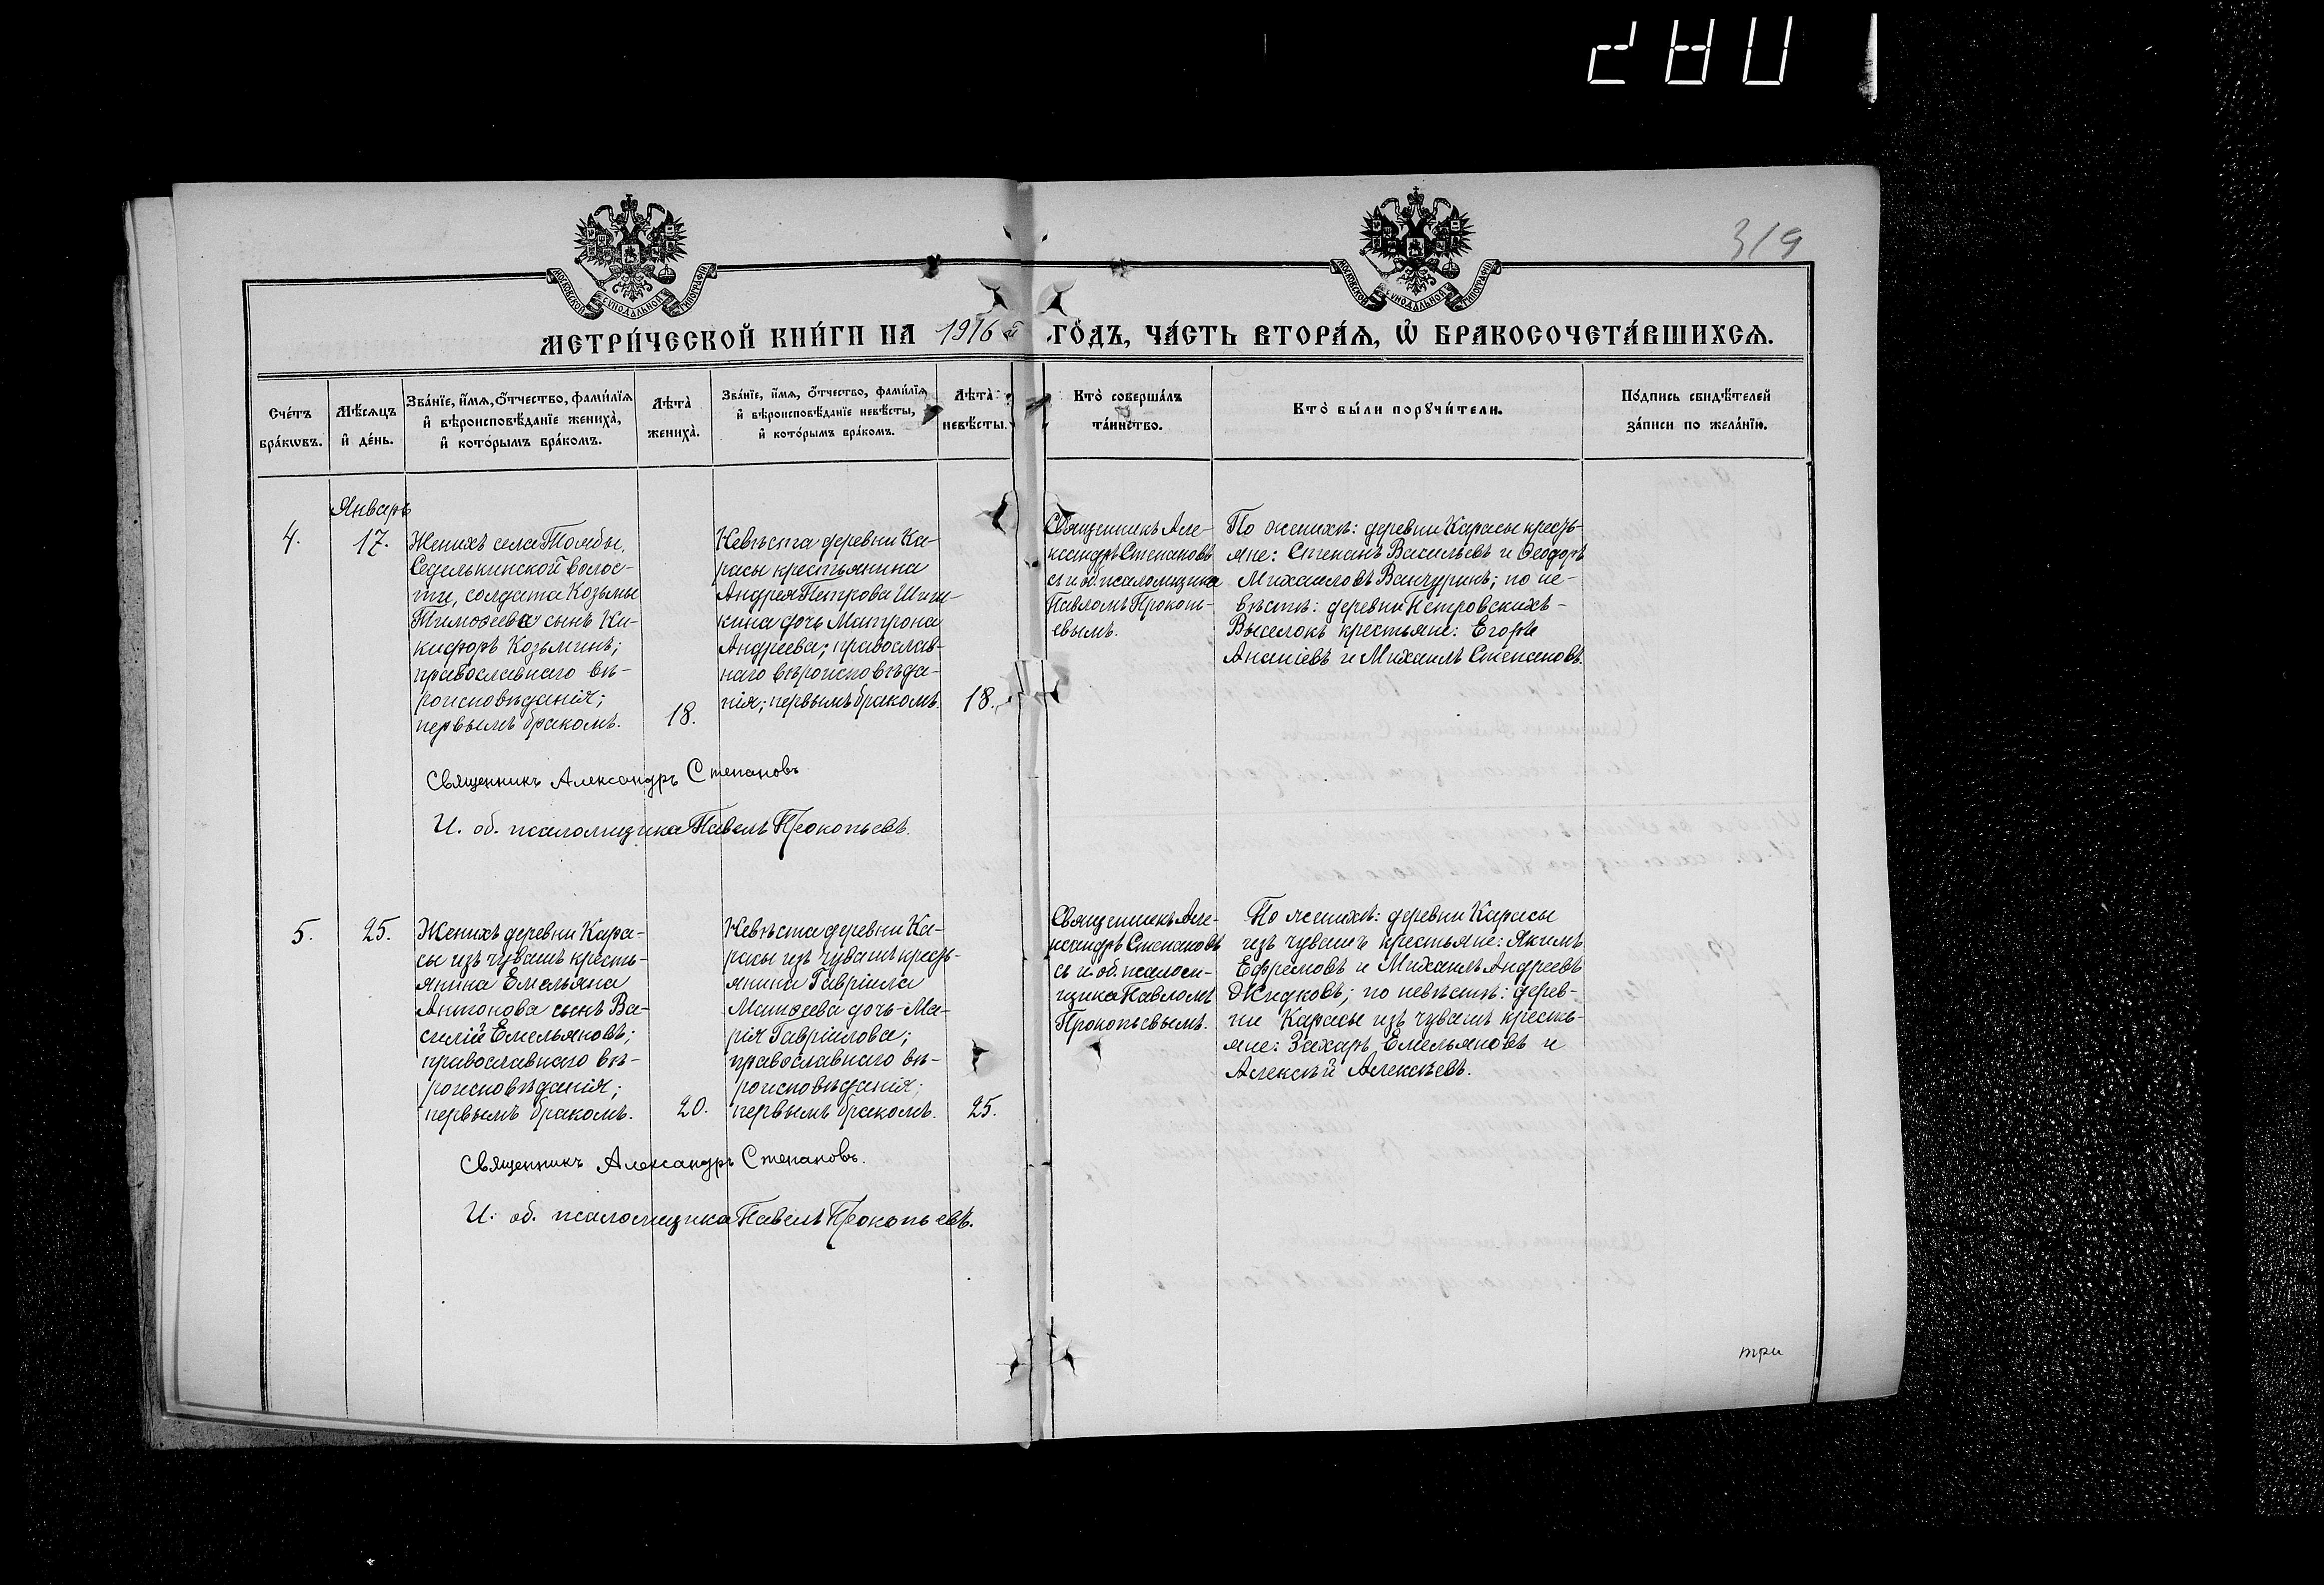 319
МОСКОВСКОЙ СѴНОДАЛЬНОЙ ТИПОГРАФІИ
МОСКОВСКОЙ СѴНОДАЛЬНОЙ ТИПОГРАФІИ
МЕТРИ́ЧЕСКОЙ КНИ́ГИ НА 1916 й ГО́ДЪ, ЧА́СТЬ ВТОРА́Ѧ, Ѡ҆ БРАКОСОЧЕТА́ВШИХСѦ.
Сче́тъ
бра́кѡвъ.
Мѣ́сѧцъ
и҆ де́нь.
Зва́нїе, и҆́мѧ, ѻ҆́тчество, фами́лїѧ
и҆ вѣроисповѣ́данїе жениха̀,
и҆ кото́рымъ бра́комъ.
Лѣта̀
жениха̀.
Зва́нїе, и҆́мѧ, ѻ҆́тчество, фами́лїѧ
и҆ вѣроисповѣ́данїе невѣ́сты,
и҆ кото́рымъ бра́комъ.
Лѣта̀
невѣ́сты.
Кто̀ соверша́лъ
та́инство.
Кто̀ бы́ли порꙋчи́тели.
По́дпись свидѣ́телей
за́писи по жела́нїю.
Январь
4.
17.
Женихъ села Толбы,
Седелькинской волос-
ти, солдата Козьмы
Тимоѳеева сынъ Ни-
кифоръ Козьминъ;
православнаго вѣ-
роисповѣданія;
первымъ бракомъ.
18.
Невѣста деревни Ка-
расы крестьянина
Андрея Петрова Шиги-
кина дочь Матрона
Андреева; православ-
наго вѣроисповѣда-
нія; первымъ бракомъ.
18.
Священникъ Але-
ксандръ Степановъ
съ и. об. псаломщика
Павломъ Прокопь-
евымъ.
По женихѣ: деревни Карасы кресть-
яне: Степанъ Васильевъ и Ѳеодоръ
Михаиловъ Ванчуринъ; по не-
вѣстѣ: деревни Петровскихъ-
Выселокъ крестьяне: Егоръ
Ананіевъ и Михаилъ Степановъ.
Священникъ Александръ Степановъ
И. об. псаломщика Павелъ Прокопьевъ.
5.
25.
Женихъ деревни Кара-
сы изъ чувашъ кресть-
янина Емельяна
Антонова сынъ Ва-
силій Емельяновъ;
православнаго вѣ-
роисповѣданія;
первымъ бракомъ.
20.
Невѣста деревни Ка-
расы изъ чувашъ кресть-
янина Гавріила
Матѳеева дочь Ма-
рія Гавріилова;
православнаго вѣ-
роисповѣданія;
первымъ бракомъ.
25.
Священникъ Але-
ксандръ Степановъ
съ и. об. псалом-
щика Павломъ
Прокопьевымъ.
По женихѣ: деревни Карасы
изъ чувашъ крестьяне: Якимъ
Ефремовъ и Михаилъ Андреевъ
Жидковъ; по невѣстѣ: дерев-
ни Карасы изъ чувашъ кресть-
яне: Захаръ Емельяновъ и
Алексѣй Алексѣевъ.
Священникъ Александръ Степановъ.
И. об. псаломщика Павелъ Прокопьевъ.
три